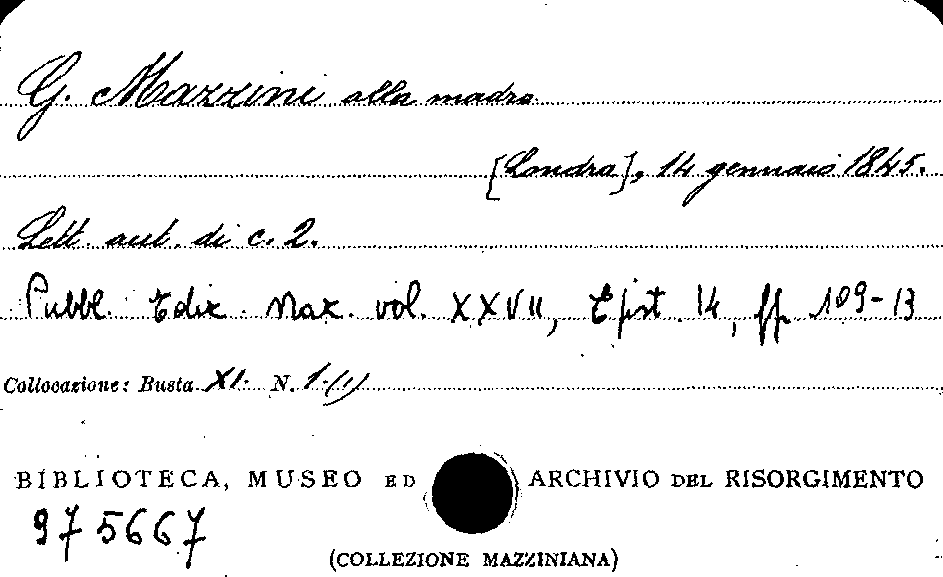 G. Mazzini alla madre
[Londra], 14 gennaio 1845.
Lett. aut. di c. 2.
Pubbl. Ediz. Naz. vol. XXVII, Epist. 14, pp. 109-13
Collocazione: Busta XI. N. 1.(1)
BIBLIOTECA, MUSEO ED ARCHIVIO DEL RISORGIMENTO
975667
(COLLEZIONE MAZZINIANA)